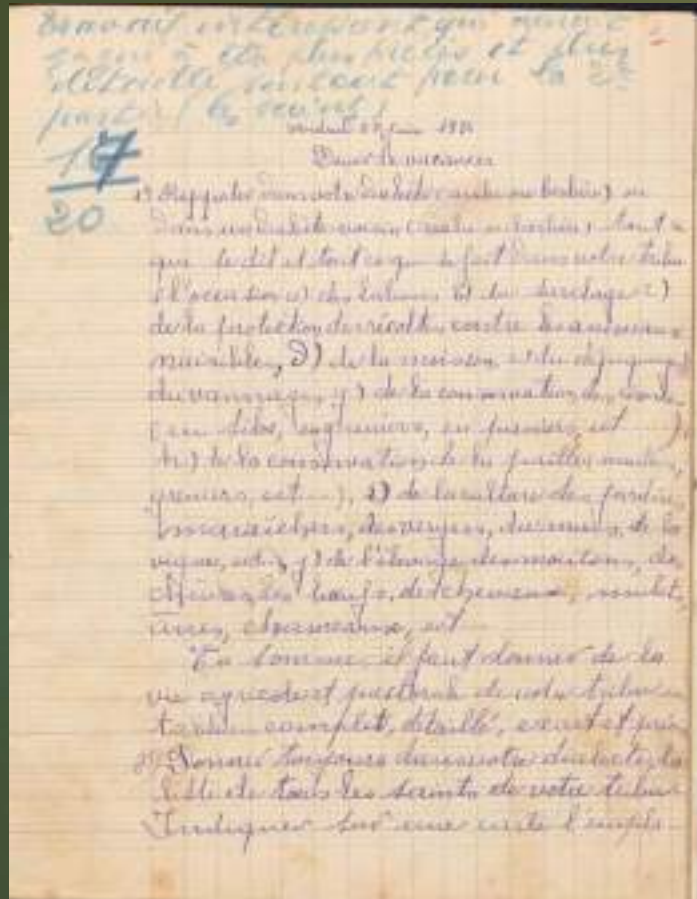 Travail intéressant qui aurait
gagné à être plus précis et plus
détaillé surtout pour la 2e
partie (les saints)
17
20
Devoir de vacances
1) Rapporter dans votre dialecte (arabe ou berbère) ou
dans un dialecte voisin (arabe ou berbère) tout ce
que se dit et tout ce qui se fait dans votre tribu
à l'occasion a) des labours b) du sarclage c)
de la protection des récoltes contre les animaux
nuisibles, d) de la moisson, e) du dépiquage
du vannage, g) de la conservation des
(en silos, en greniers, en
h) de la conservation de la paille
greniers, ect...), i) de la culture des jardins
maraîchers, des vergers, de la
vigne, ect. j) de l'élevage des moutons, des
chèvres, des bœufs, des chevaux, mulets,
ânes, chameaux, ect
En somme, il faut donner de la
vie agricole et pastorale de votre tribu un
tableau complet, détaillé, exact et précis
2) Donner toujours dans votre dialecte, la
liste de tous les saints de votre tribu
Indiquer sur une carte l'empla-